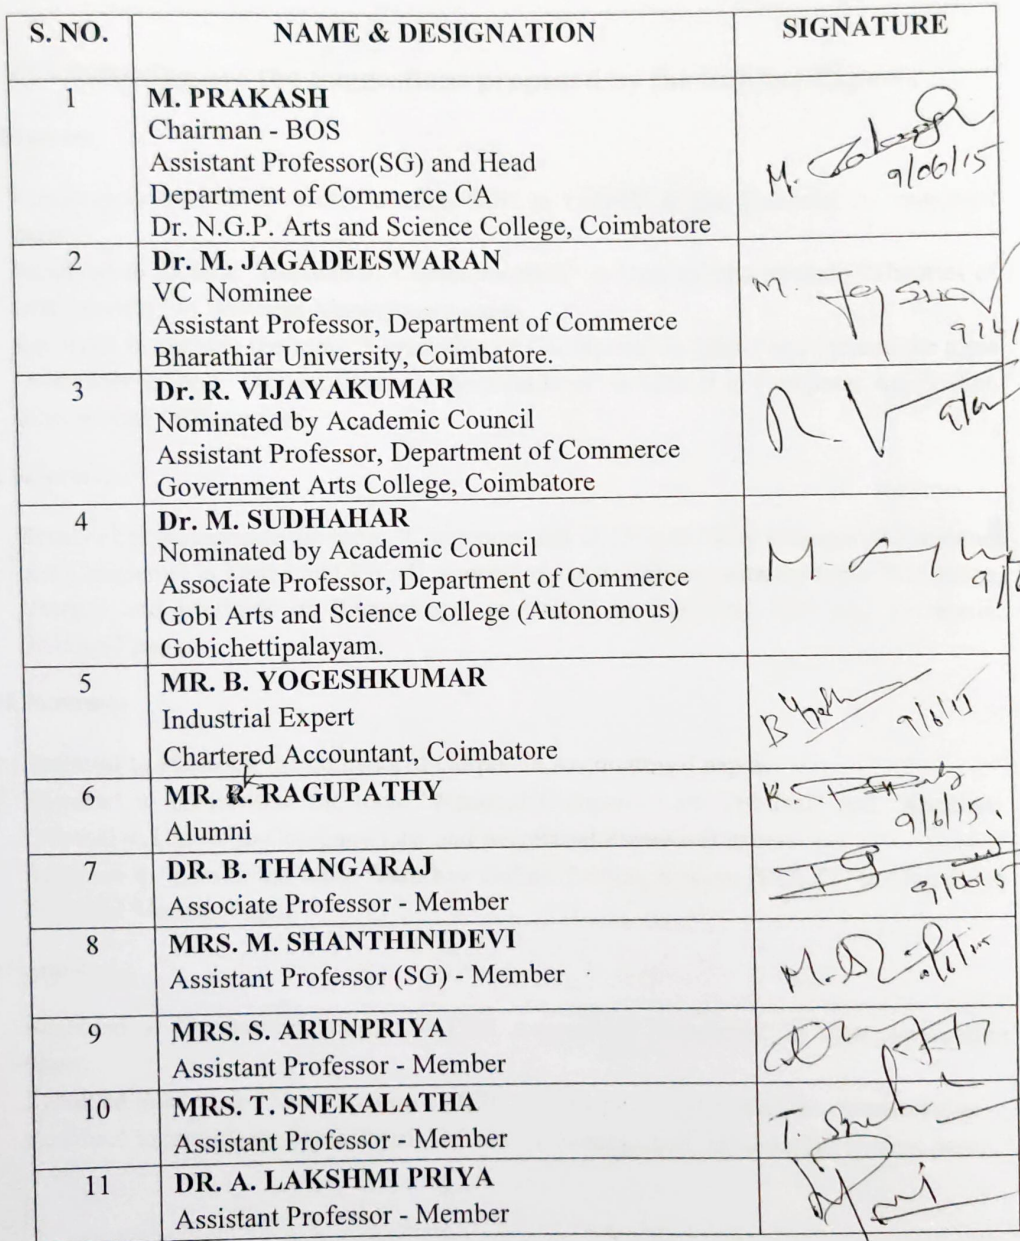 S. NO. NAME & DESIGNATION SIGNATURE
1 M. PRAKASH
Chairman - BOS
Assistant Professor(SG) and Head
Department of Commerce CA
Dr. N.G.P. Arts and Science College, Coimbatore
M.
9/06/15
2 Dr. M. JAGADEESWARAN
VC Nominee
Assistant Professor, Department of Commerce
Bharathiar University, Coimbatore.
M
3 Dr. R. VIJAYAKUMAR
Nominated by Academic Council
Assistant Professor, Department of Commerce
Government Arts College, Coimbatore
R. V
4 Dr. M. SUDHAHAR
Nominated by Academic Council
Associate Professor, Department of Commerce
Gobi Arts and Science College (Autonomous)
Gobichettipalayam.
M.
5 MR. B. YOGESHKUMAR
Industrial Expert
Chartered Accountant, Coimbatore
B
9/6/15
k
6 MR. R. RAGUPATHY
Alumni
K.
9/6/15
7 DR. B. THANGARAJ
Associate Professor - Member
9/06/15
8 MRS. M. SHANTHINIDEVI
Assistant Professor (SG) - Member
M.
9 MRS. S. ARUNPRIYA
Assistant Professor - Member
10 MRS. T. SNEKALATHA
Assistant Professor - Member
T.
11 DR. A. LAKSHMI PRIYA
Assistant Professor - Member